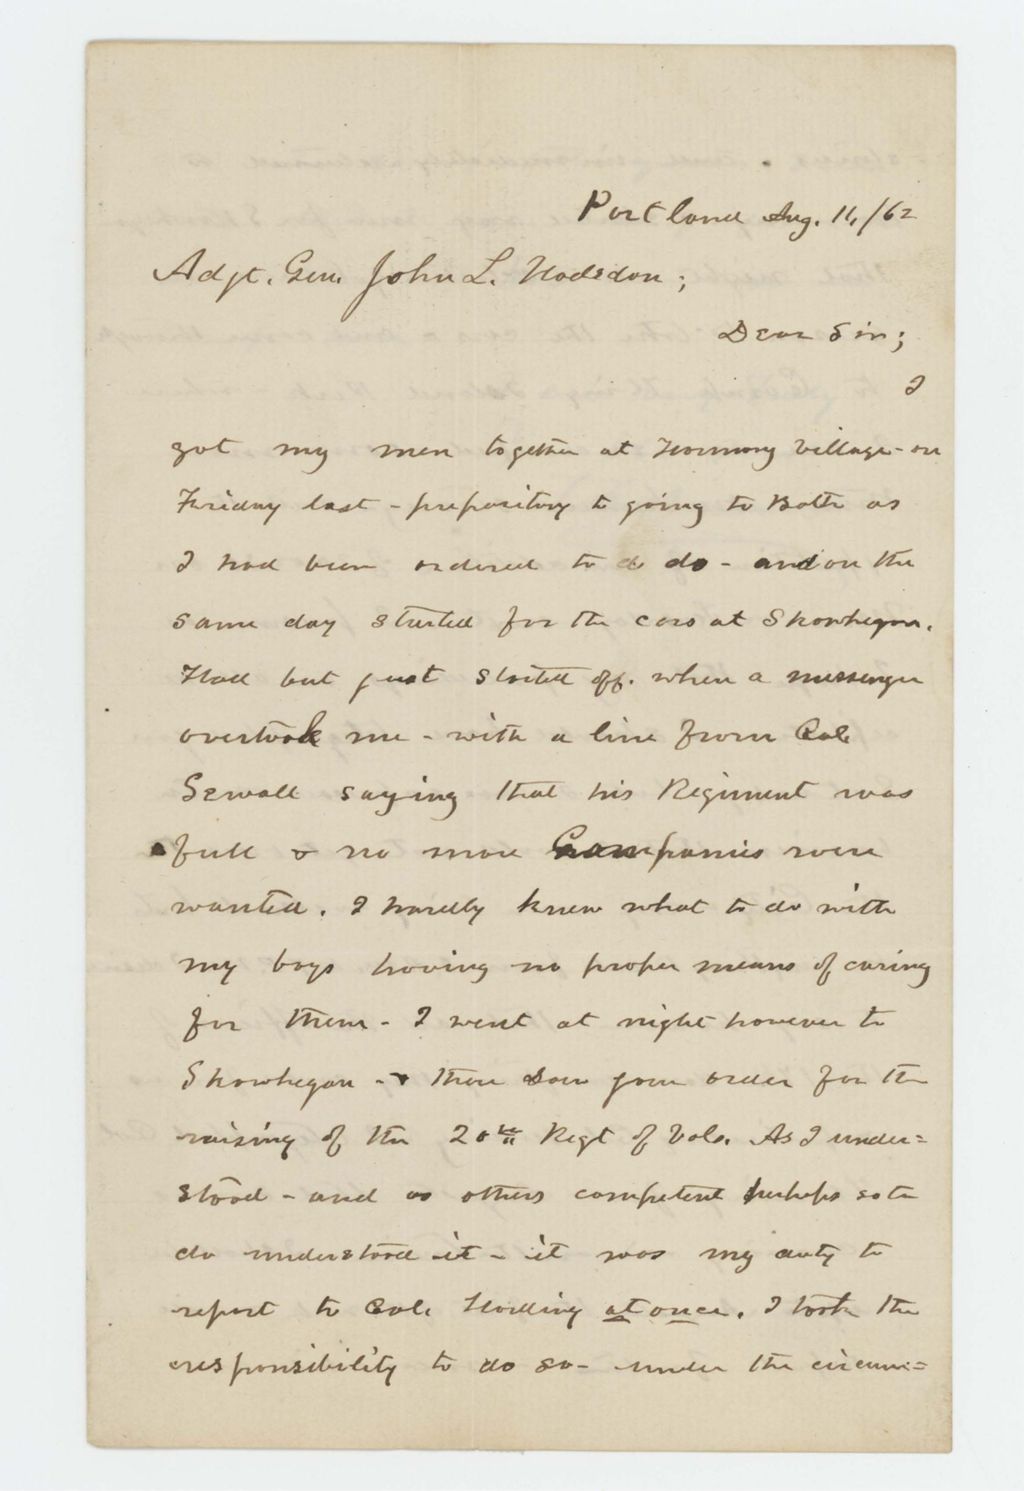 Portland Aug. 14, /62
Adjt. Gen. John L. Hodsdon;
Dear Sir;
I
got my men together at Harmony Village - on
Friday last - prepository to going to Bath as
I had been ordered to do - and on the
same day started for the cars at Skowhegan.
Had but just started off. when a messenger
overtook me - with a line from Col.
Sewall saying that his Regiment was
full & no more Companies were
wanted. I hardly knew what to do with
my boys having no proper means of caring
for them - I went at night however to
Skowhegan - & there saw your order for the
raising of the 20th Regt of Vols. As I under=
stood - and as others competent perhaps so to
do understood it - it was my duty to
report to Col. Harding at once. I took the
responsibility to do so - under the circum=